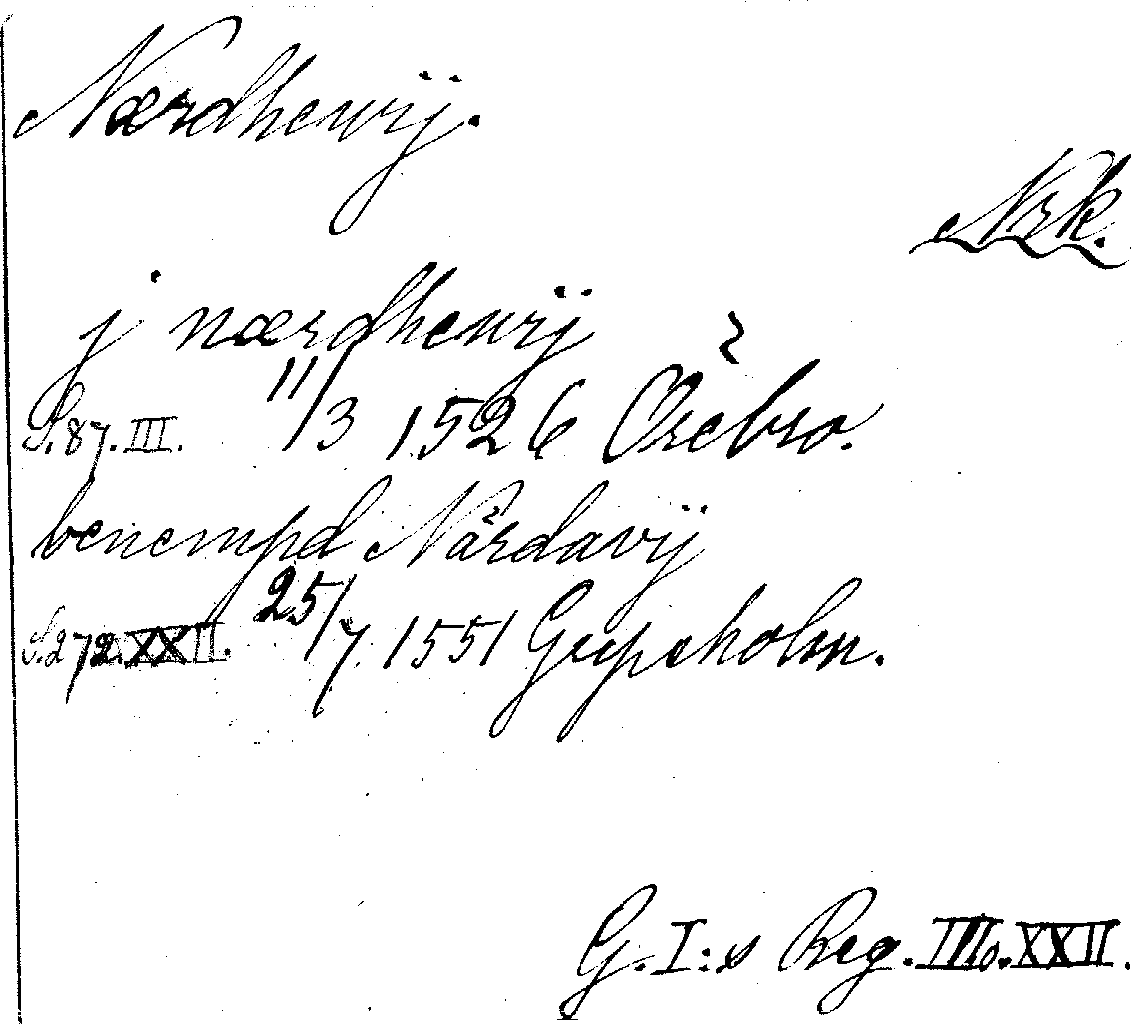 Nærdhewij.
Nrk.
j nærdhewij
S. 87. III. 11/3 1526 Örebro.
benempd Närdavij
S. 272. XXII. 25/7. 1551 Gripsholm.
G. I:s Reg. III o. XXII.